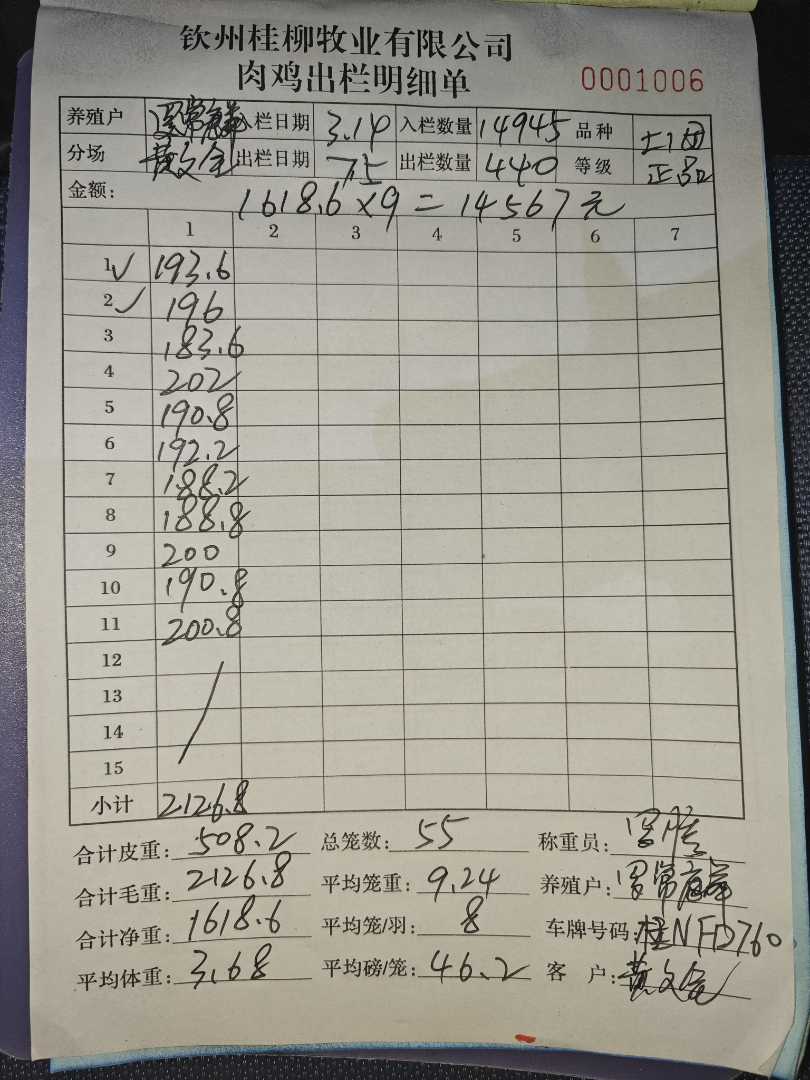 钦州桂柳牧业有限公司
肉鸡出栏明细单 0001006
养殖户 罗常麟 入栏日期 3.14 入栏数量 14945 品种 土2团
分场 黄文金 出栏日期 7.5 出栏数量 440 等级 正品
金额: 1618.6×9=14567元
1 2 3 4 5 6 7
1✓ 193.6
2✓ 196
3 183.6
4 202
5 190.8
6 192.2
7 188.2
8 188.8
9 200
10 190.8
11 200.8
12
13
14
15
小计 2126.8
合计皮重: 508.2 总笼数: 55 称重员:
合计毛重: 2126.8 平均笼重: 9.24 养殖户: 罗常麟
合计净重: 1618.6 平均笼/羽: 8 车牌号码: 桂NFD760
平均体重: 3.68 平均磅/笼: 46.2 客 户: 黄文金